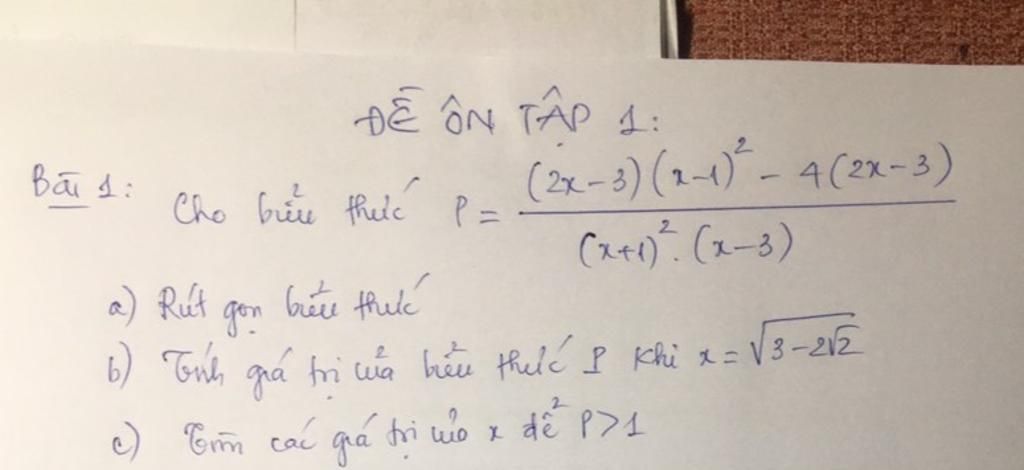 ĐỀ ÔN TẬP 1:
Bài 1: Cho biểu thức P = \frac{(2x-3)(x-1)^2 - 4(2x-3)}{(x+1)^2.(x-3)}
a) Rút gọn biểu thức
b) Tính giá trị của biểu thức P khi x = \sqrt{3-2\sqrt{2}}
c) Tìm các giá trị của x để P>1